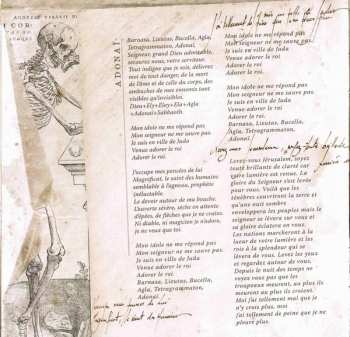 ANDREAE VESALII
ADONAÏ
Barnasa, Lieutas, Bucella, Agla,
Tetragrammaton, Adonaï,
Seigneur, grand Dieu admirable,
secourez nous, votre serviteur.
Tout indigne que je sois, délivrez
moi de tout danger, de la mort
de l'âme et de celle du corps, des
embuches de mes ennemis tant
visibles qu'invisibles.
Dieu•Ely•Eloy•Ela•Agla
•Adonaï•Sabbaoth.
Mon idole ne me répond pas
Mon seigneur ne me sauve pas.
Je suis en ville de Juda
Venue adorer le roi
Adorer le roi.
J'occupe mes pensées de lui
Magnificat, le saint des humains
semblable à l'agneau, prophète
inéluctable.
Le devoir autour de ma bouche.
L'ouverte sévère, sèche en attente
d'épées, de flèches que je ne crains.
Ni diable, ni magicien je n'adore,
je ne veux que toi.
Mon idole ne me répond pas
Mon seigneur ne me sauve pas.
Je suis en ville de Juda
Venue adorer le roi
Adorer le roi.
Barnasa, Lieutas, Bucella,
Agla, Tetragrammaton,
Adonaï.
Mon idole ne me répond pas
Mon seigneur ne me sauve pas.
Je suis en ville de Juda
Venue adorer le roi
Adorer le roi.
Mon idole ne me répond pas
Mon seigneur ne me sauve pas.
Je suis en ville de Juda
Venue adorer le roi
Adorer le roi.
Barnasa, Lieutas, Bucella,
Agla, Tetragrammaton,
Adonaï.
Levez-vous Jérusalem, soyez
toute brillante de clarté car
votre lumière est venue. La
gloire du Seigneur s'est levée
pour vous. Voilà que les
ténèbres couvriront la terre et
qu'une nuit sombre
enveloppera les peuples mais le
seigneur se lèvera sur vous et
sa gloire éclatera en vous.
Les nations marcheront à la
lueur de votre lumière et les
rois à la splendeur qui se
lèvera de vous. Levez les yeux
et regardez autour de vous.
Depuis le nuit des temps ne
voyez vous pas que les
troupeaux meurent, au plus ils
meurent au plus ils croissent.
Moi j'ai tellement mal que je
n'y crois plus, moi
j'ai tellement de peine que je ne
pleure plus.